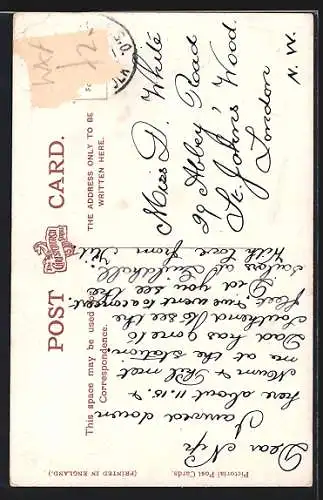 POST CARD.
THE ADDRESS ONLY TO BE
WRITTEN HERE.
This space may be used for
Correspondence.
Pictorial Post Cards.
(PRINTED IN ENGLAND.)
Dear
I arrived down
here about 11.15. &
Mum & Phil met
me at the station.
Dad has gone to
Southend to see the
fleet, & we went to a concert
Did you see the
Sailors at Guildhall.
With love from
Miss D. White
29 Abbey Road
St. Johns' Wood.
London
N. W.